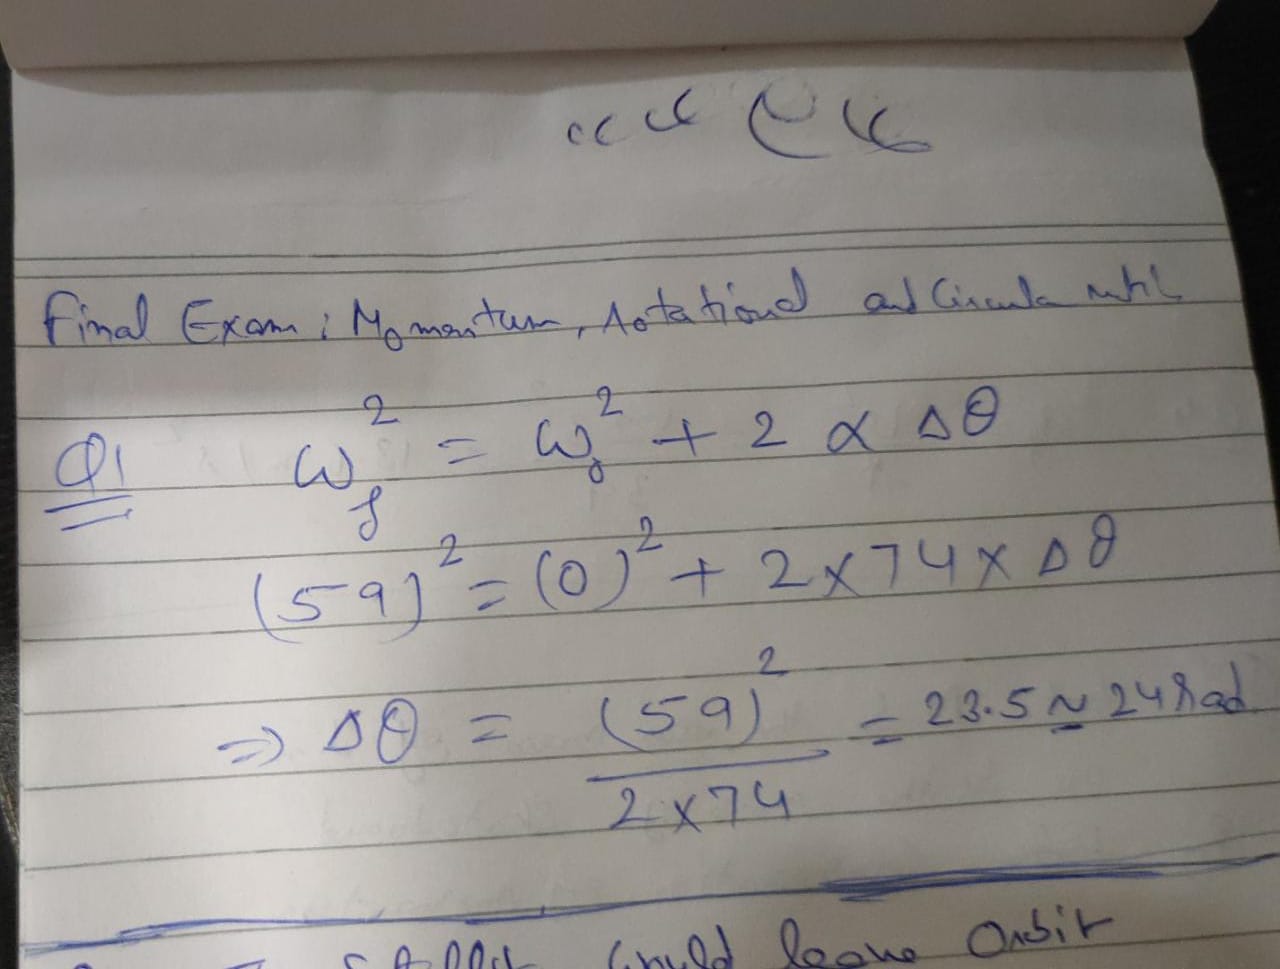 Final Exam: Momentum, Rotational and Circular
Q1 ω_f² = ω_0² + 2 α Δθ
(59)² = (0)² + 2×74×Δθ
⇒ Δθ = (59)² / 2×74 = 23.5 ≈ 24 rad
could leave Orbit